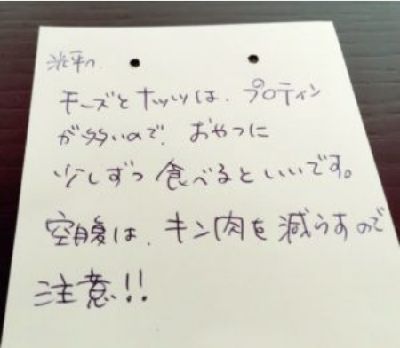 チーズとナッツは、プロティン
が多いので、おやつに
少しずつ食べるといいです。
空腹は、キン肉を減らすので
注意!!